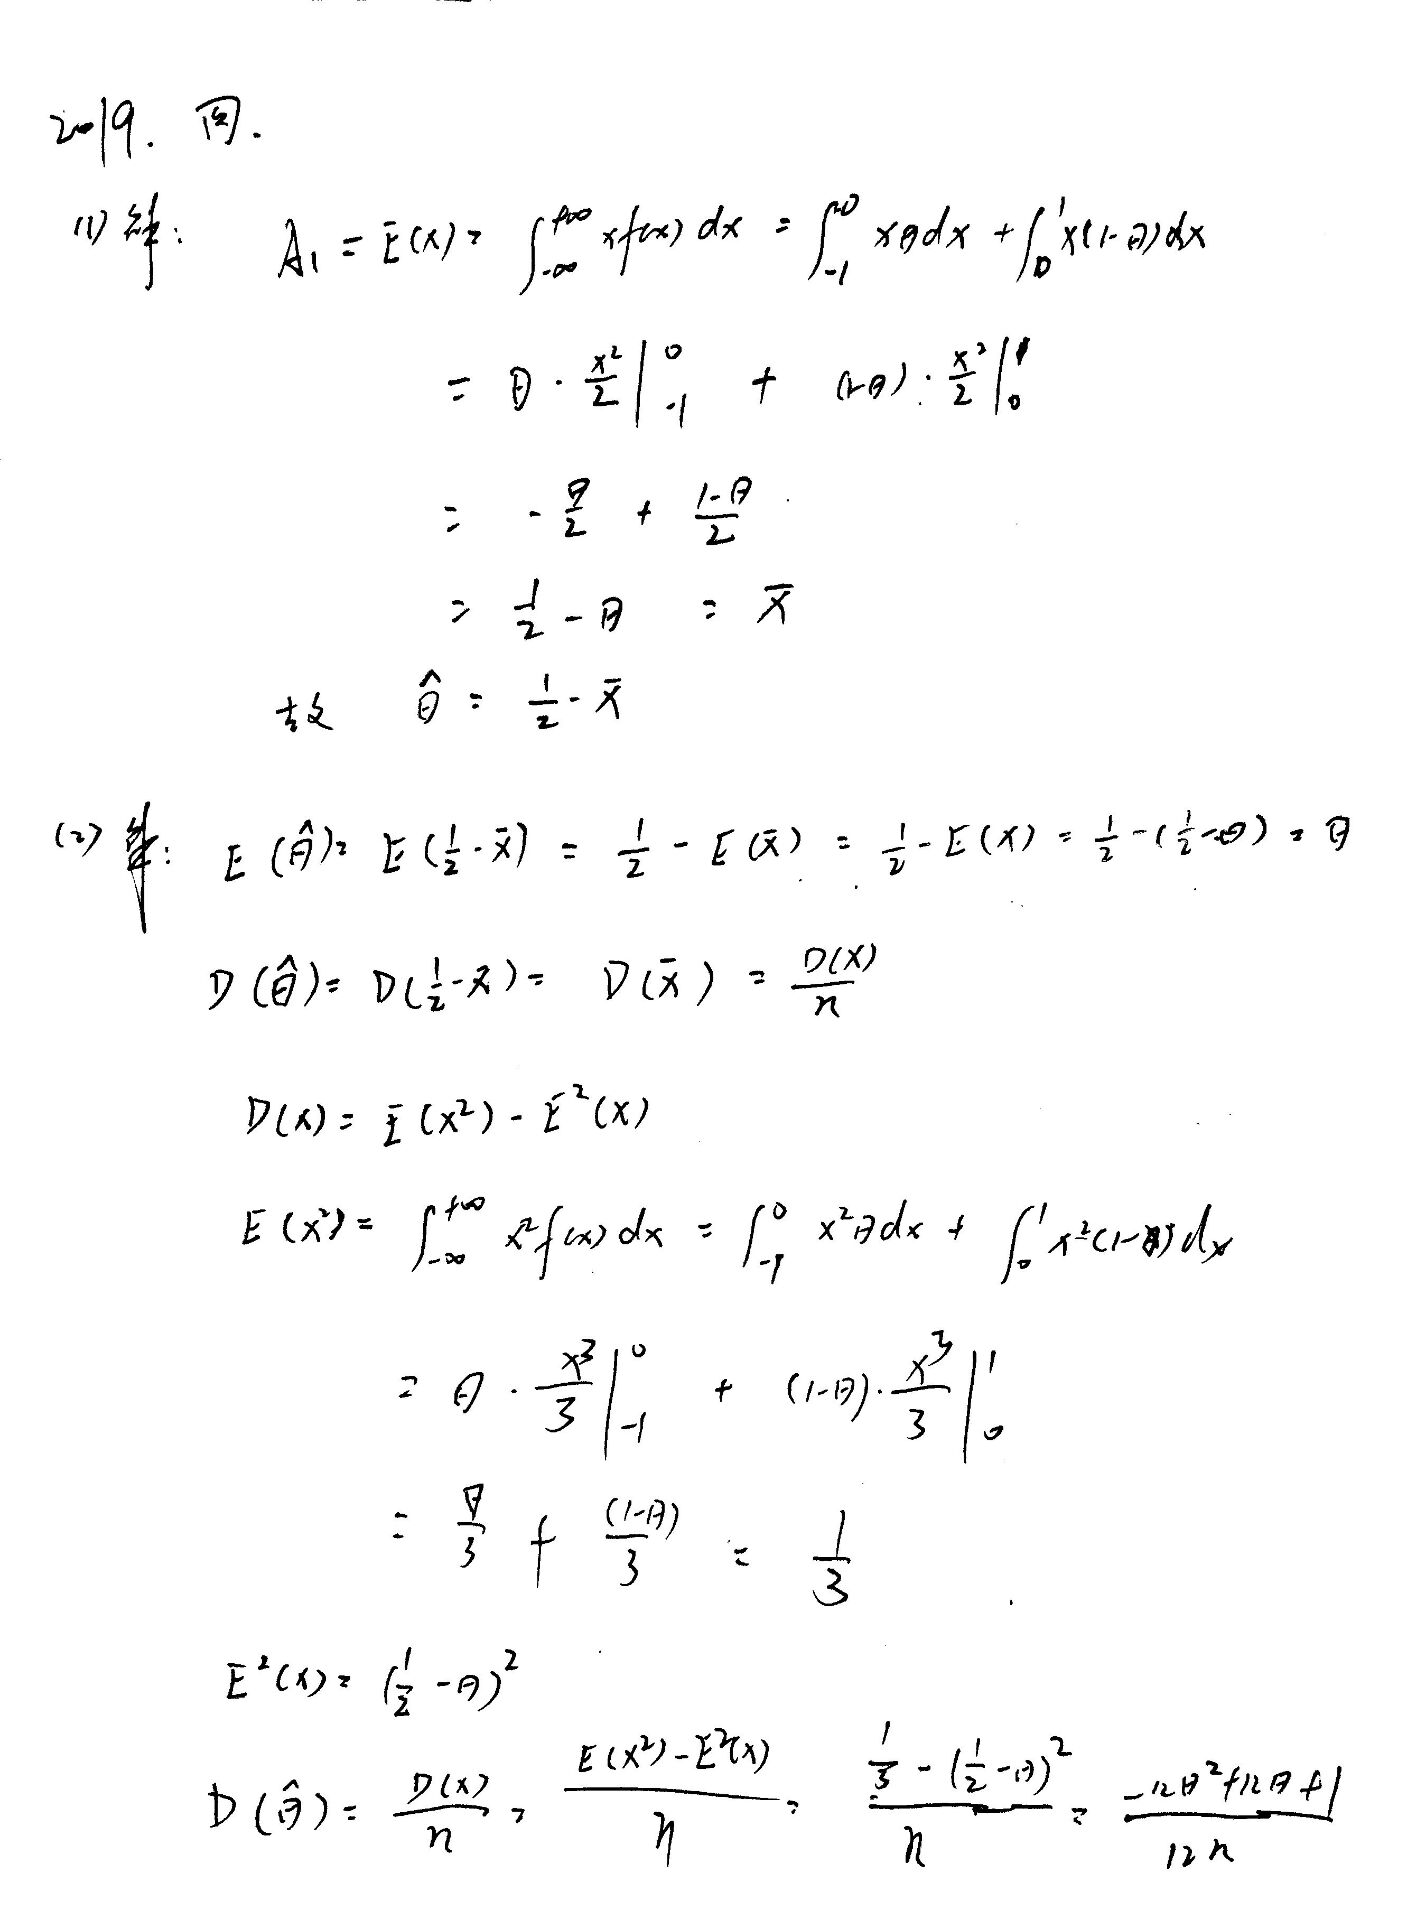 2019. 四.
(1) 解: A₁ = E(X) = ∫_{-∞}^{+∞} x f(x) dx = ∫_{-1}^{0} xθdx + ∫_{0}^{1} x(1-θ)dx
= θ · x²/2 |_{-1}^{0} + (1-θ) · x²/2 |_{0}^{1}
= - θ/2 + (1-θ)/2
= 1/2 - θ = x̄
故 θ̂ = 1/2 - x̄
(2) 解: E(θ̂) = E(1/2 - x̄) = 1/2 - E(x̄) = 1/2 - E(X) = 1/2 - (1/2 - θ) = θ
D(θ̂) = D(1/2 - x̄) = D(x̄) = D(X)/n
D(X) = E(X²) - E²(X)
E(X²) = ∫_{-∞}^{+∞} x² f(x) dx = ∫_{-1}^{0} x²θdx + ∫_{0}^{1} x²(1-θ)dx
= θ · x³/3 |_{-1}^{0} + (1-θ) · x³/3 |_{0}^{1}
= θ/3 + (1-θ)/3 = 1/3
E²(X) = (1/2 - θ)²
D(θ̂) = D(X)/n = (E(X²) - E²(X))/n = (1/3 - (1/2 - θ)²)/n = (-12θ² + 12θ + 1)/12n